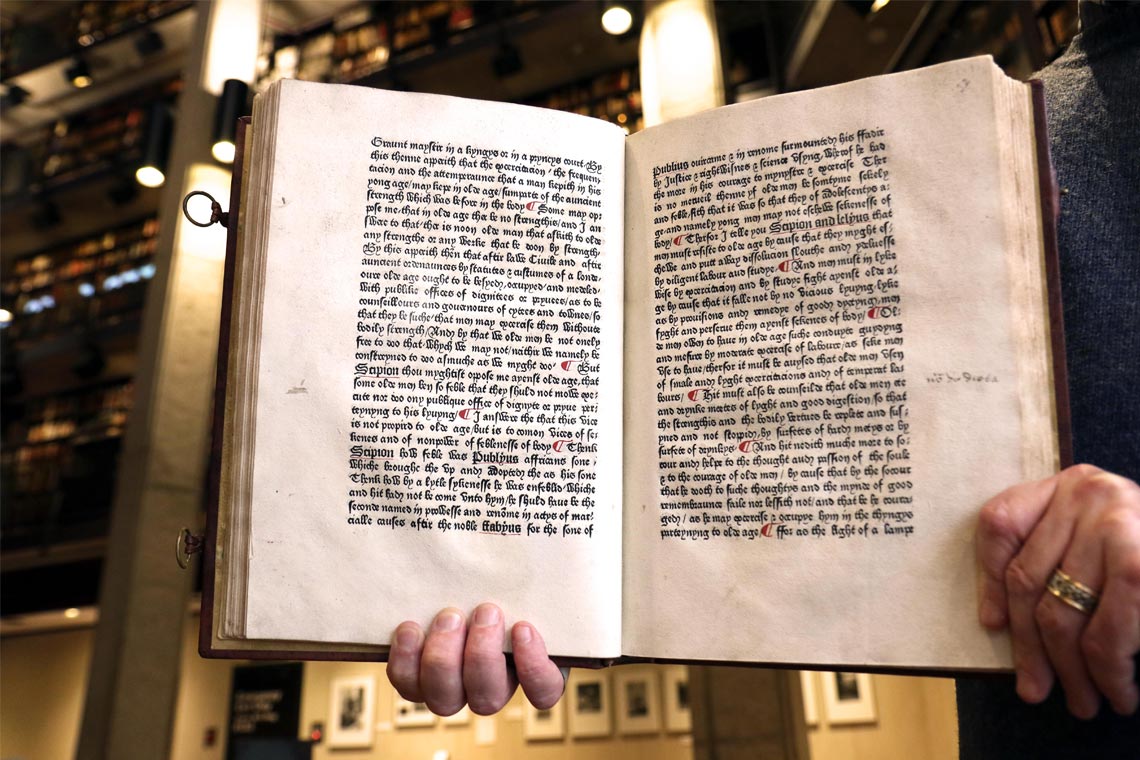 Graunt maystir in a kyngys or in a pryncys court / By
this thenne apperith that the excercitacion / the frequen
tacion and the attemperaunce that a man kepith in his
yong age / may kepe in olde age / sumparte of the auncient
strength whiche was before in the body ¶ Some may op:
pose me / that in olde age ther be no strengthis / and I an
swere to that / ther is noon olde man that askith to olde
any strengthe or any werke that be don by strength
By this apperith then that aftir lawe Ciuile and aftir
auncient ordenaunces by statutes & custumes of a londe /
oure olde age ought to be besyed / occupyed / and medeled /
with publike offices of dignitees or pryuees / as to be
counseillours and gouernours of cytees and townes / so
that they be suche / that men may excercise them withoute
bodily strength / And by that we olde men be not onely
free to doo that whych we may not / neithir we namely be
constreyned to doo asmuche as we myght doo ¶ But
Scipion thou myghtist oppose me ayenst olde age, that
some olde men ben so feble that they shuld not mowe exe:
cute nor doo ony publique office of dignyte or pryue per:
teynyng to his lyuyng / ¶ I answere the that this vice
is not propird to olde age / but is to comon vices of se:
kenes and of nonpower of feblenesse of body ¶ Thenk
Scipion how feble was Publyus affricans sone /
whiche broughte the vp and adopted the as his sone
Thenk how by a lytle sykenesse he was enfeblid / whiche
and hit hady not be come vnto hym / he shuld haue be the
seconde named in prowesse and renome in actys of mar:
cialle causes aftir the noble ffabyus for the sone of
Publius ouircame & in renome surmountedy his ffadir
by Justice & rightwisnes & science vsyng, wherof he had
the more in his courage to mynystre & excercise Ther
is no merueil thenne yf olde men be somtyme sekely
and feble, sith that it was so that they of Adolescentys a:
ge and namely yong men may not eschewe sekenesse of
body / ¶ Therfor I telle you Scipion and lelyus that
men must resiste to olde age by cause that they myght es:
chewe and putt awey dissolucion slouthe and ydelnesse
by diligent labour and studye. ¶ And men must in lyke
wise by excercitacion and by studye fight ayenst olde a:
ge by cause that it falle not by no vicious lyuyng lyke
as by prouisions and remedye of goody dyetyng, men
fyght and perserue them ayenst sekenes of body / ¶ Ol:
de men owen to haue in olde age suche conduyte guydyng
and mesure by moderate excercise of labours / as seke men
vse to haue / therfor it must be aduysed that olde men vsen
of smale and lyght excercitacions andy of temperat la:
bours / ¶ Hit must also be counseilde that olde men ete
and drynke metes of lyght and good digestion / so that
the strengthis and the bodily vertues be replete and sus:
teyned and not stoppid, by surfetes of hardy metys or by
surfete of drynkys ¶ And hit nedith muche more to so:
cour and helpe to the thought andy passion of the soule
& to the courage of olde men / by cause that by the socour
that he doth to suche thoughtys and the mynde of good
remembraunce faile nor lessith not / and that he be coura:
gedy / as he may excercise & occupye hym in the thyngys
parteynyng to olde age / ¶ ffor as the light of a lampe